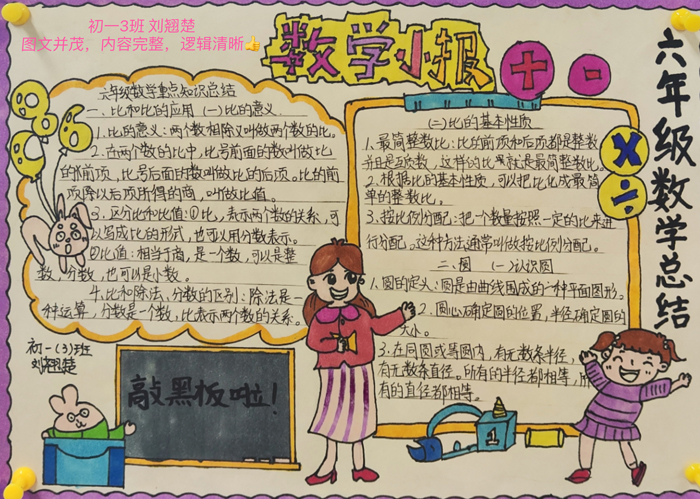 初一3班 刘翘楚
图文并茂，内容完整，逻辑清晰👍
数学小报
+ -
× ÷
六年级数学总结
六年级数学重点知识总结
一、比和比的应用 (一)比的意义
1.比的意义：两个数相除又叫做两个数的比。
2.在两个数的比中，比号前面的数叫做比
的前项，比号后面的数叫做比的后项。比的前
项除以后项所得的商，叫做比值。
3.区分比和比值：①比，表示两个数的关系，可
以写成比的形式，也可以用分数表示。
②比值：相当于商，是一个数，可以是整
数，分数，也可以是小数。
4.比和除法、分数的区别：除法是一
种运算，分数是一个数，比表示两个数的关系。
初一(3)班
刘翘楚
敲黑板啦！
(二)比的基本性质
1.最简整数比：比的前项和后项都是整数
并且是互质数，这样的比就是最简整数比。
2.根据比的基本性质，可以把比化成最简
单的整数比。
3.按比例分配：把一个数量按照一定的比来进
行分配。这种方法通常叫做按比例分配。
二、圆 (一)认识圆
1.圆的定义：圆是由曲线围成的一种平面图形。
2.圆心确定圆的位置，半径确定圆的
大小。
3.在同圆或等圆内，有无数条半径，
有无数条直径。所有的半径都相等，所
有的直径都相等。